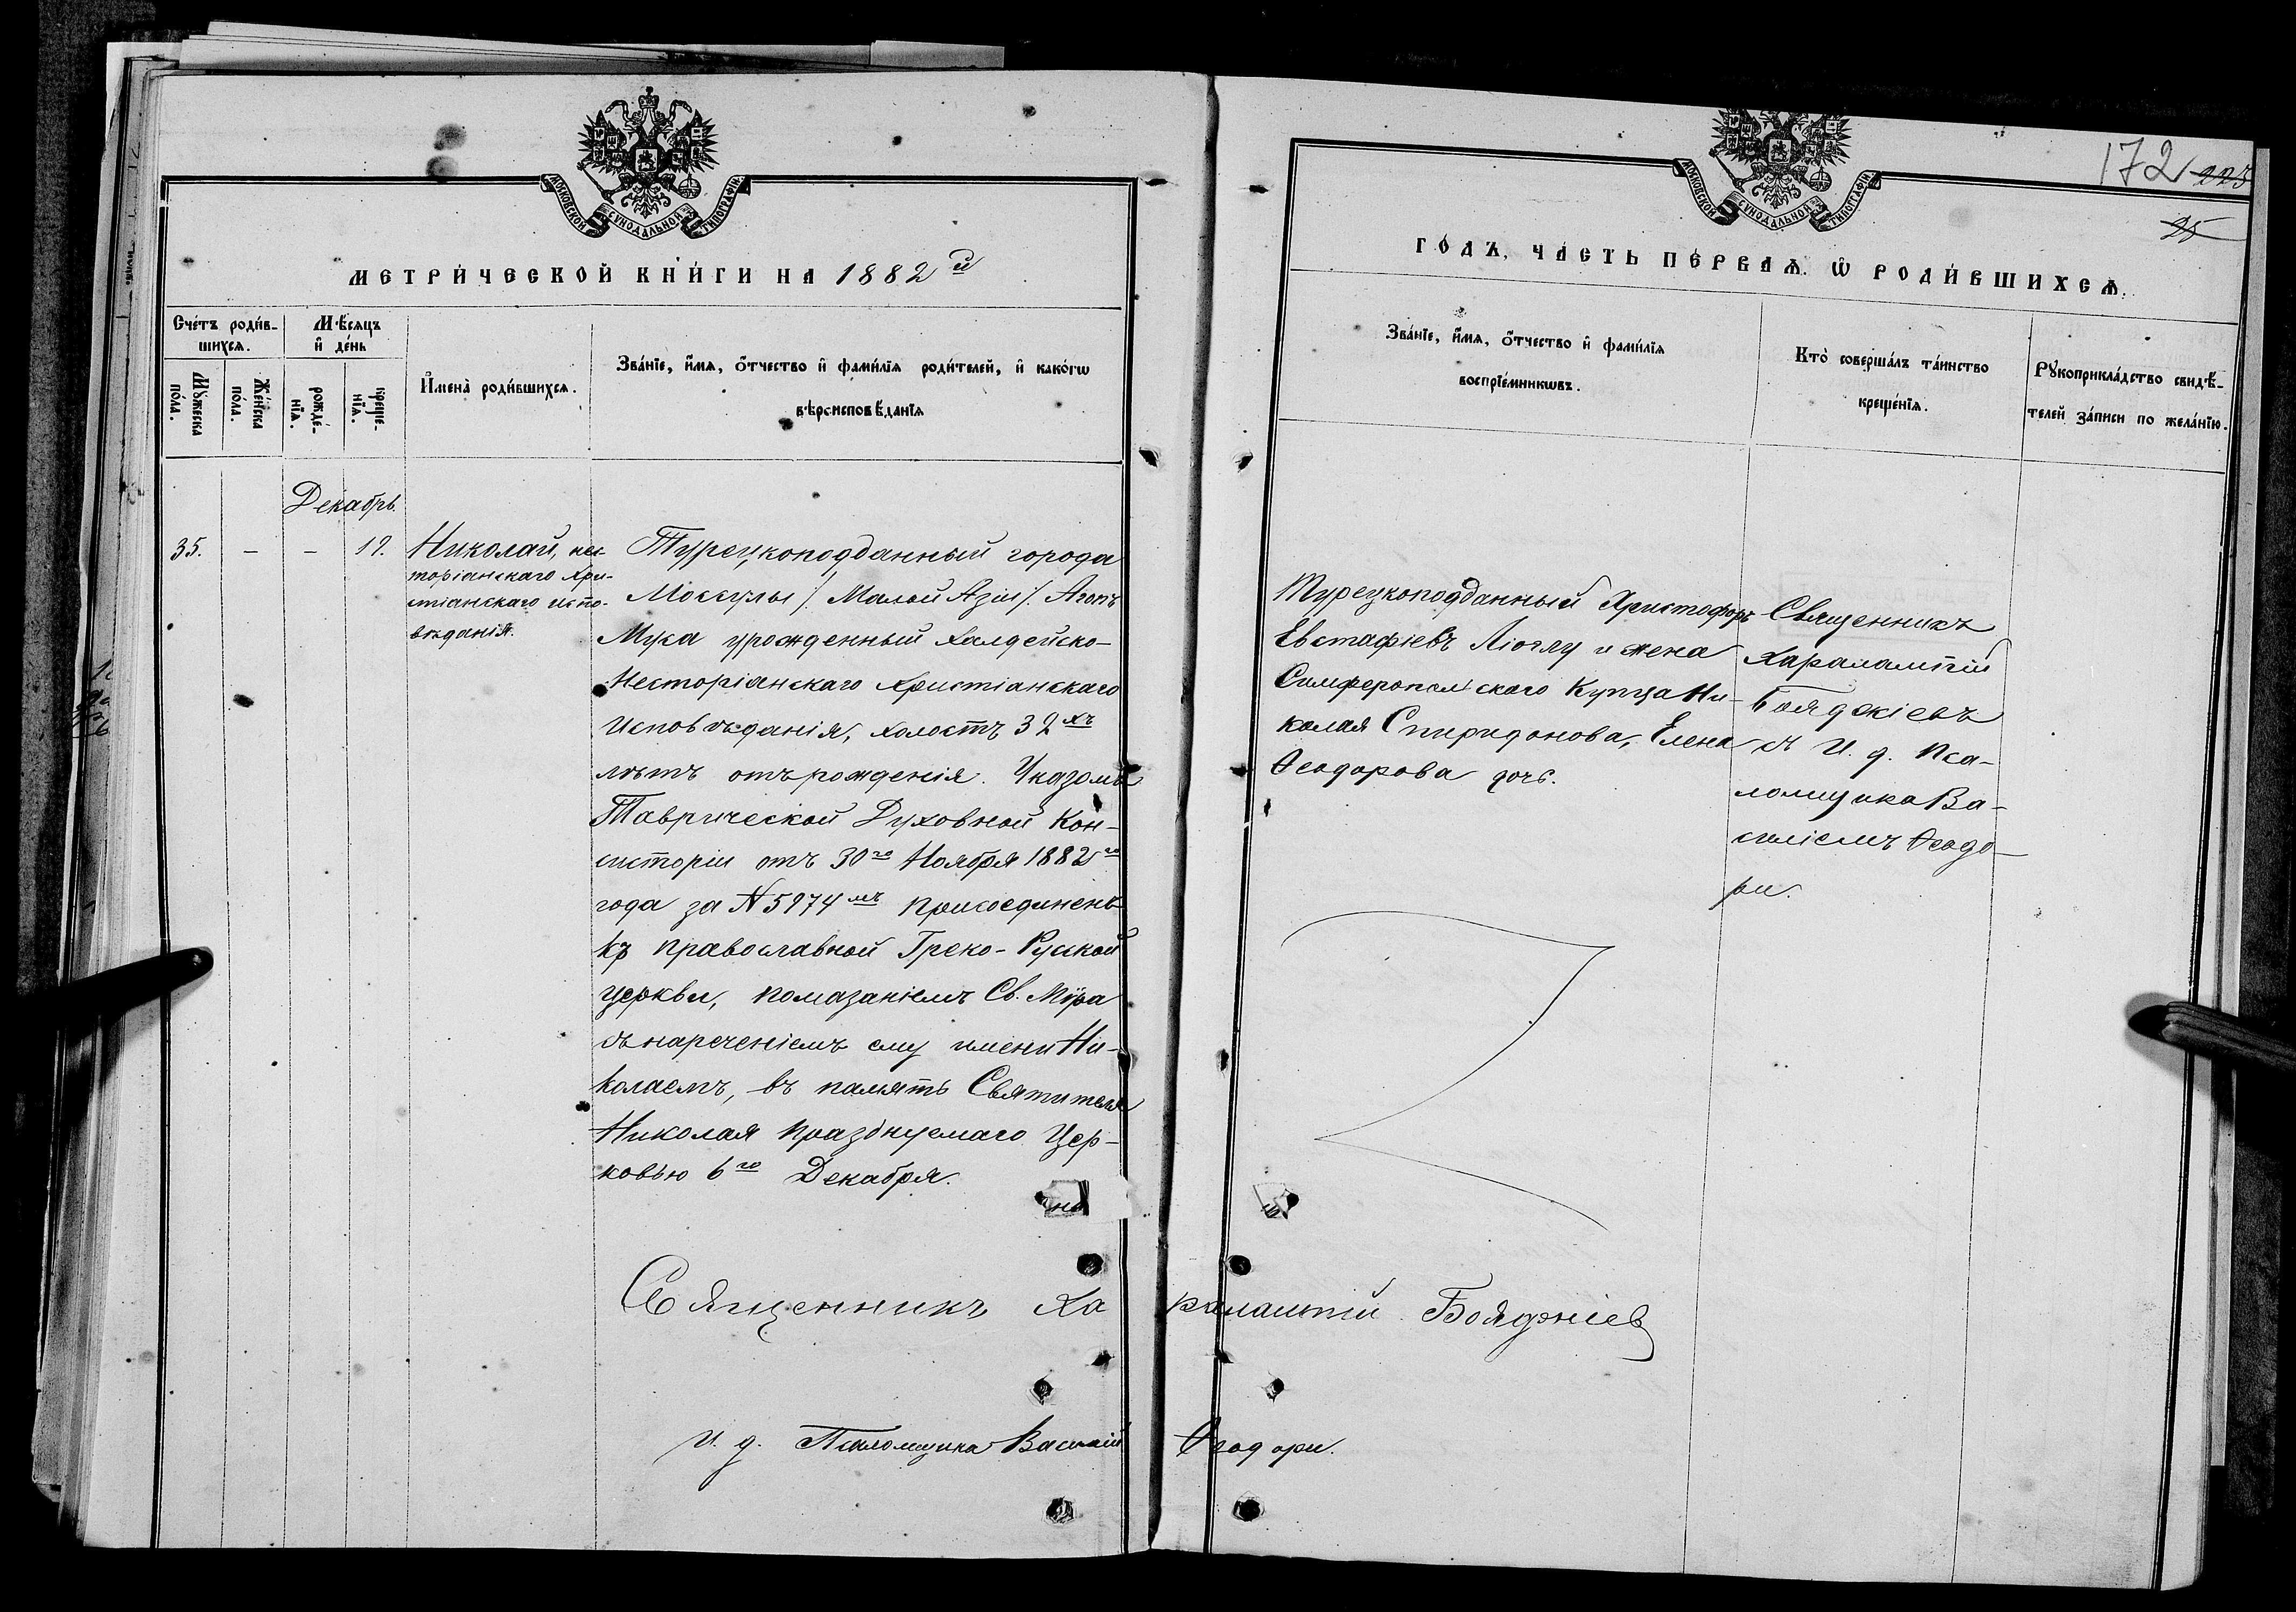 МОСКОВСКОЙ СУНОДАЛЬНОЙ ТИПОГРАФІИ.
МЕТРИ́ЧЕСКОЙ КНИ́ГИ НА 1882й
Сче́тъ роди́в-
шихсѧ.
Мꙋ́жеска
по́ла.
Же́нска
по́ла.
Мѣ́сѧцъ
и҆ де́нь
рожде́-
нїѧ.
креще-
нїѧ.
И҆мена̀ роди́вшихсѧ.
Зва́нїе, и҆́мѧ, ѻ҆́тчество и҆ фами́лїѧ роди́телей, и҆ како́гѡ
вѣроисповѣ́данїѧ
Декабрь
35. – – 19.
Николай, нес-
торіанскаго хри-
стіанскаго испо-
вѣданія.
Турецкоподданный города
Моссулы /. Малой Азіи /. Агопъ
Муса урожденный Халдейско-
Несторіанскаго Христіанскаго
Исповѣданія, холостъ 32хъ
лѣтъ отъ рожденія. Указомъ
Таврической Духовной Кон-
систоріи отъ 30го Ноября 1882го
года за N 5974мъ присоединенъ
къ православной Греко-Руской
церкви, помазаніемъ Св. Мѵра
съ нареченіемъ ему имени Ни-
колаемъ, въ память Святителя
Николая празднуемаго Цер-
ковью 6го Декабря.
Священникъ Харалампій Бояджіев
И. д. Псаломщика Василій Ѳеодори.
172 225
25
МОСКОВСКОЙ СУНОДАЛЬНОЙ ТИПОГРАФІИ.
ГО́ДЪ, ЧА́СТЬ ПЕ́РВАѦ. Ѡ РОДИ́ВШИХСѦ.
Зва́нїе, и҆́мѧ, ѻ҆́тчество и҆ фами́лїѧ
воспрїе́мникѡвъ.
Кто̀ соверша́лъ та́инство
креще́нїѧ.
Рꙋкоприкла́дство свидѣ́-
телей за́писи по жела́нїю.
Турецкоподданный Христофоръ
Евстафіевъ Ліоглу и жена
Симферопольскаго Купца Ни-
колая Спиридонова, Елена
Ѳеодорова дочь.
Священникъ
Харалампій
Бояджіевъ
съ И. д. Пса-
ломщика Ва-
силіемъ Ѳеодо-
ри.